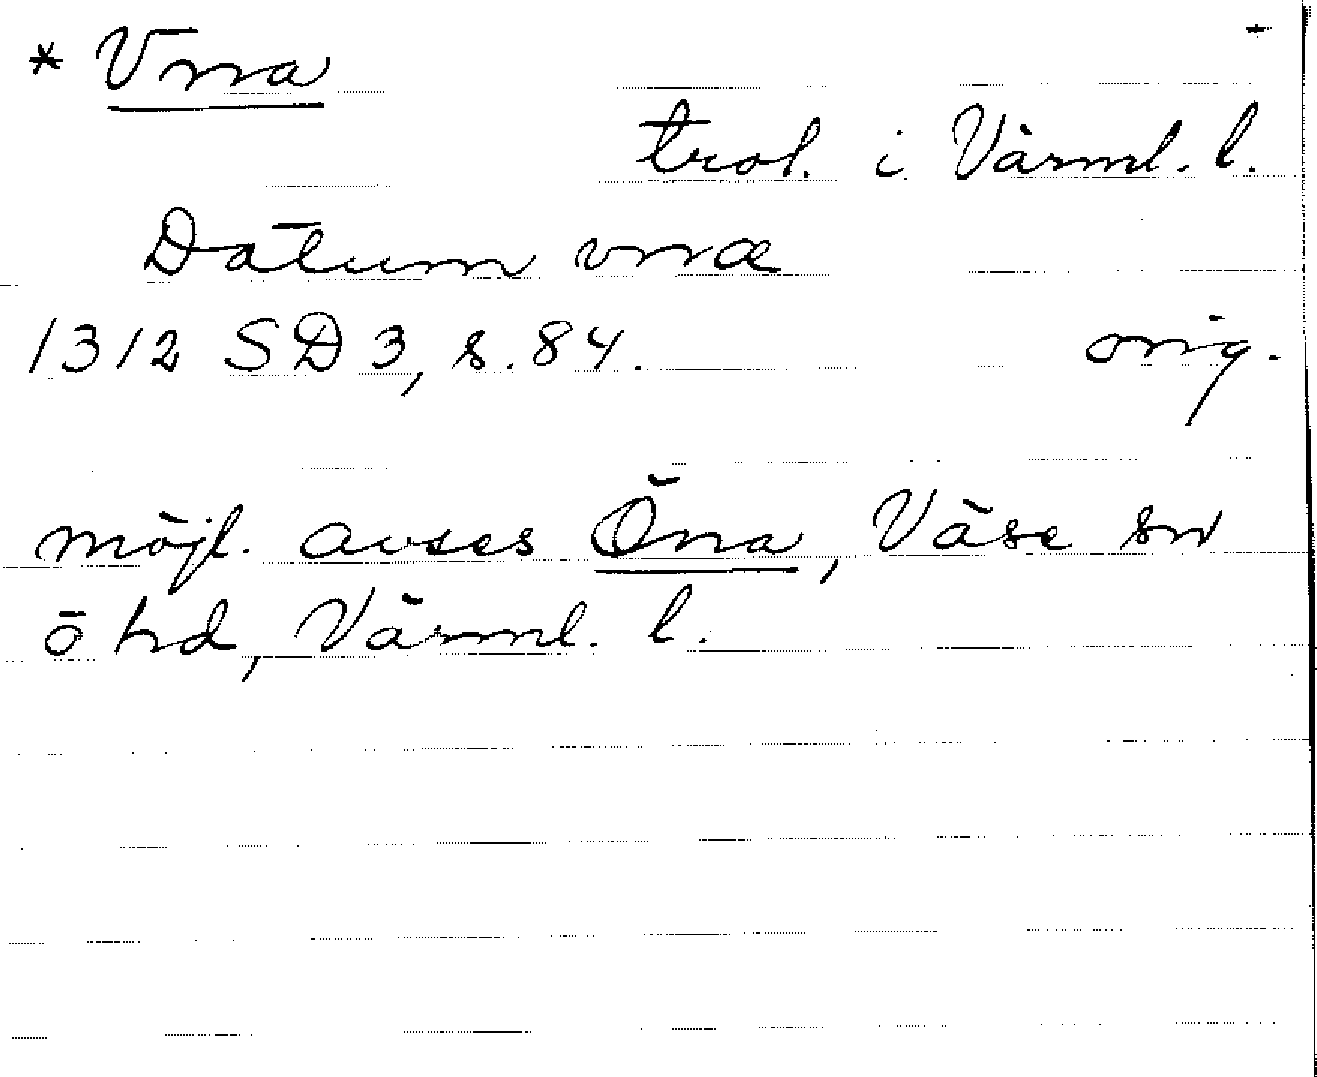 * Vna
trol. i Värml. l.
Datum vnæ
1312 SD 3, s. 84. orig.
möjl. avses Öna, Väse sn
ö hd, Värml. l.